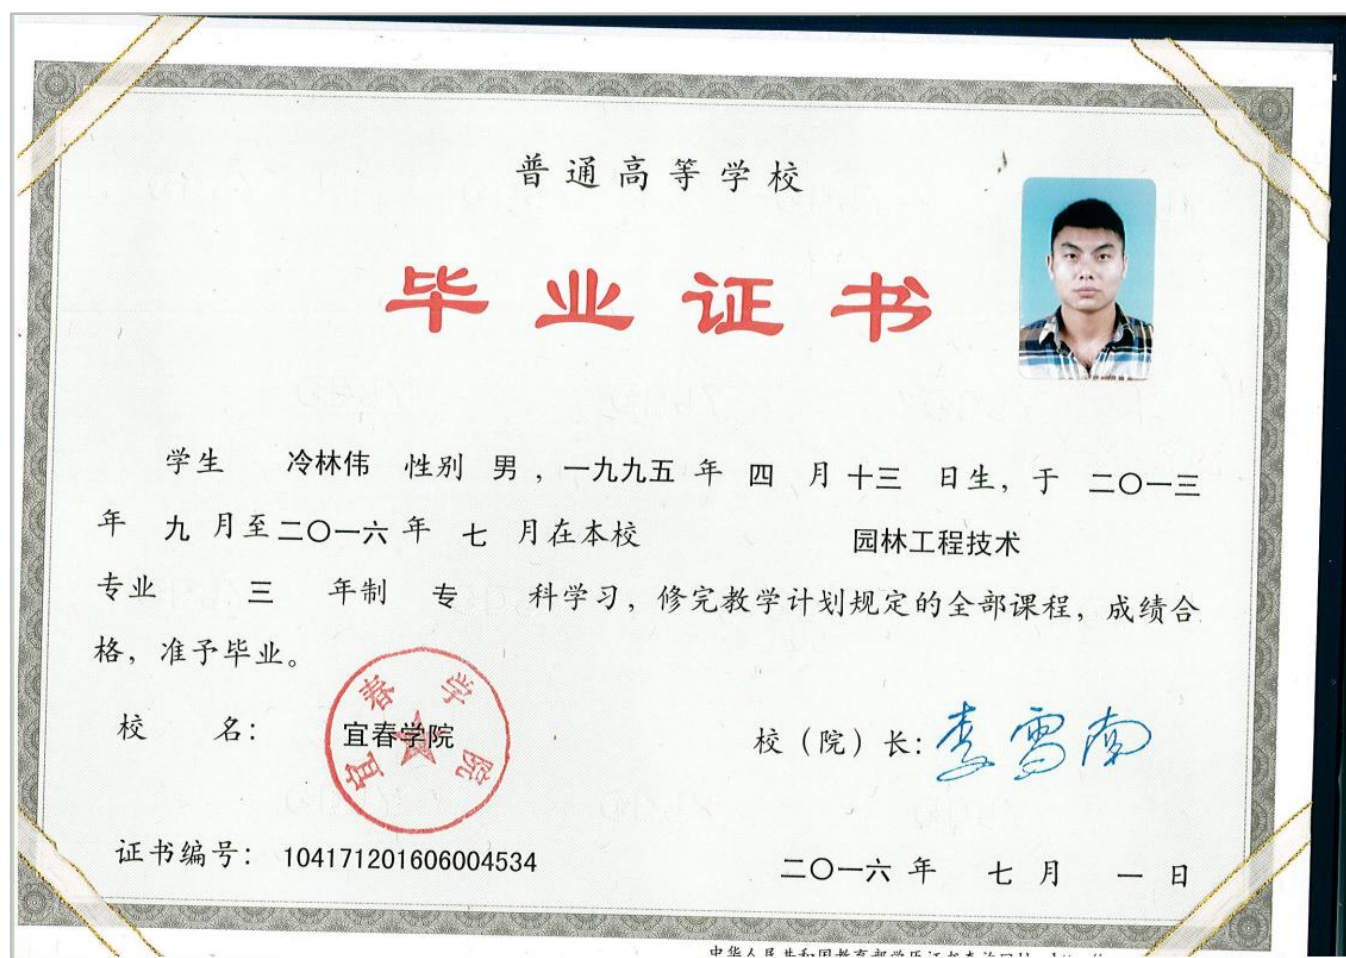 普通高等学校
毕业证书
学生 冷林伟 性别 男，一九九五 年 四 月 十三 日生，于 二〇一三
年 九 月至二〇一六 年 七 月在本校 园林工程技术
专业 三 年制 专 科学习，修完教学计划规定的全部课程，成绩合
格，准予毕业。
校 名： 宜春学院
宜春学院
校（院）长：李雪南
证书编号： 104171201606004534
二〇一六 年 七 月 一 日